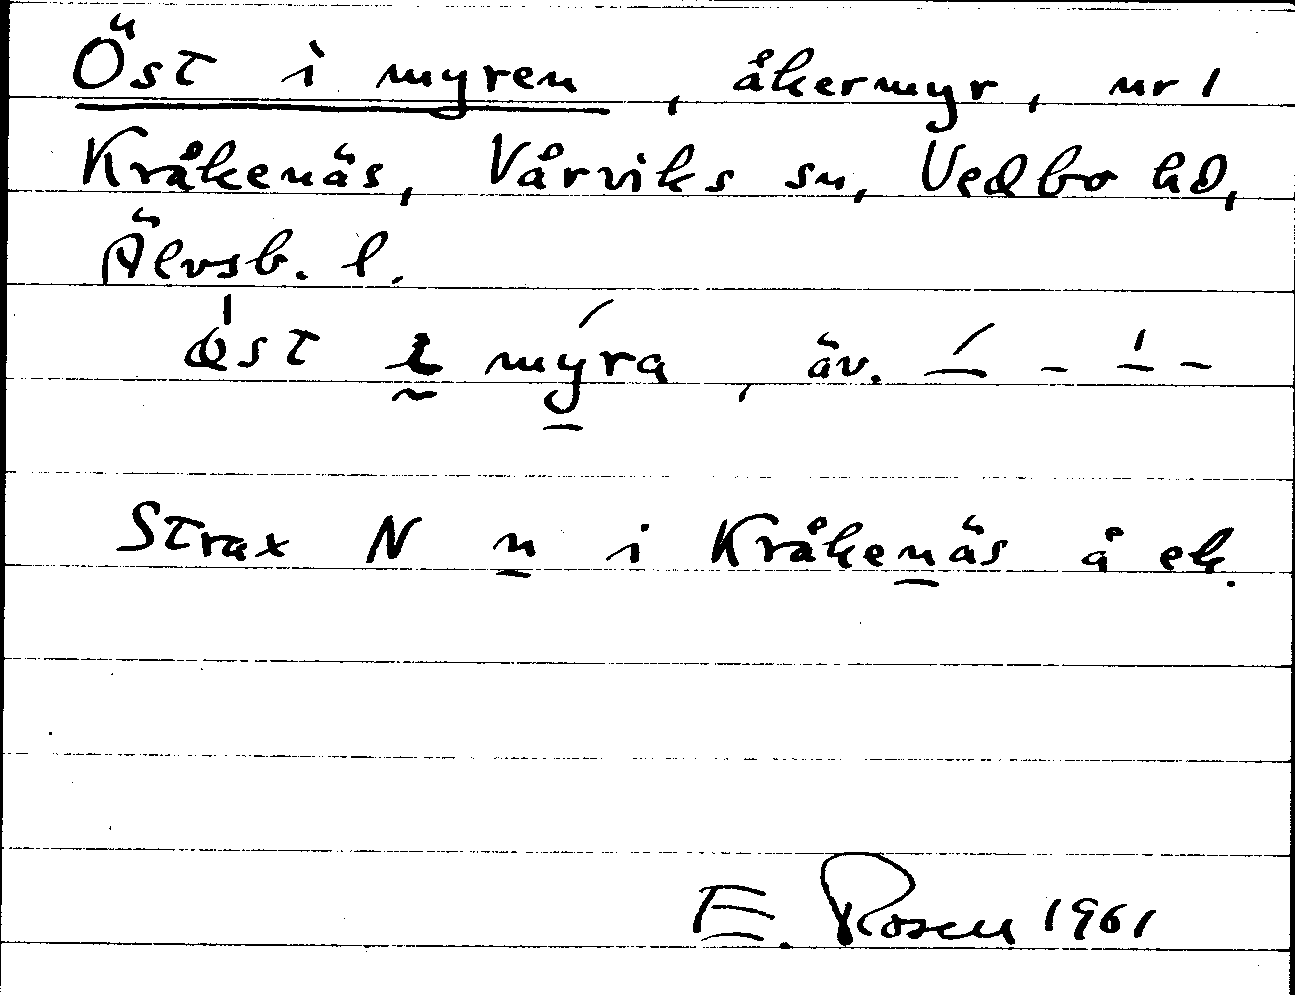 Öst i myren, åkermyr, nr 1
Kråkenäs, Vårviks sn, Vedbo hd,
Älvsb. l.
øst ɩ myra, äv. — - — -
Strax N n i Kråkenäs å ek.
E. Rosen 1961